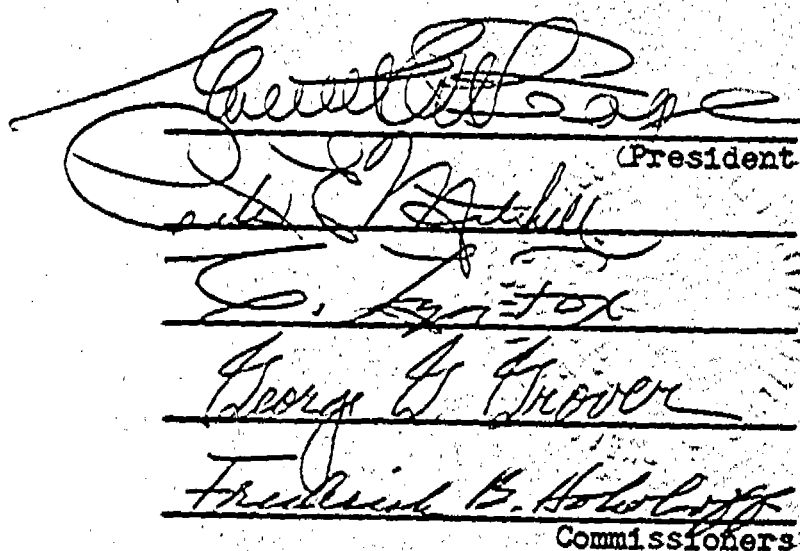 (President
Peter E. Mitchell
C. Lyn Fox
George G Grover
Frederick B. Holoboff
Commissioners